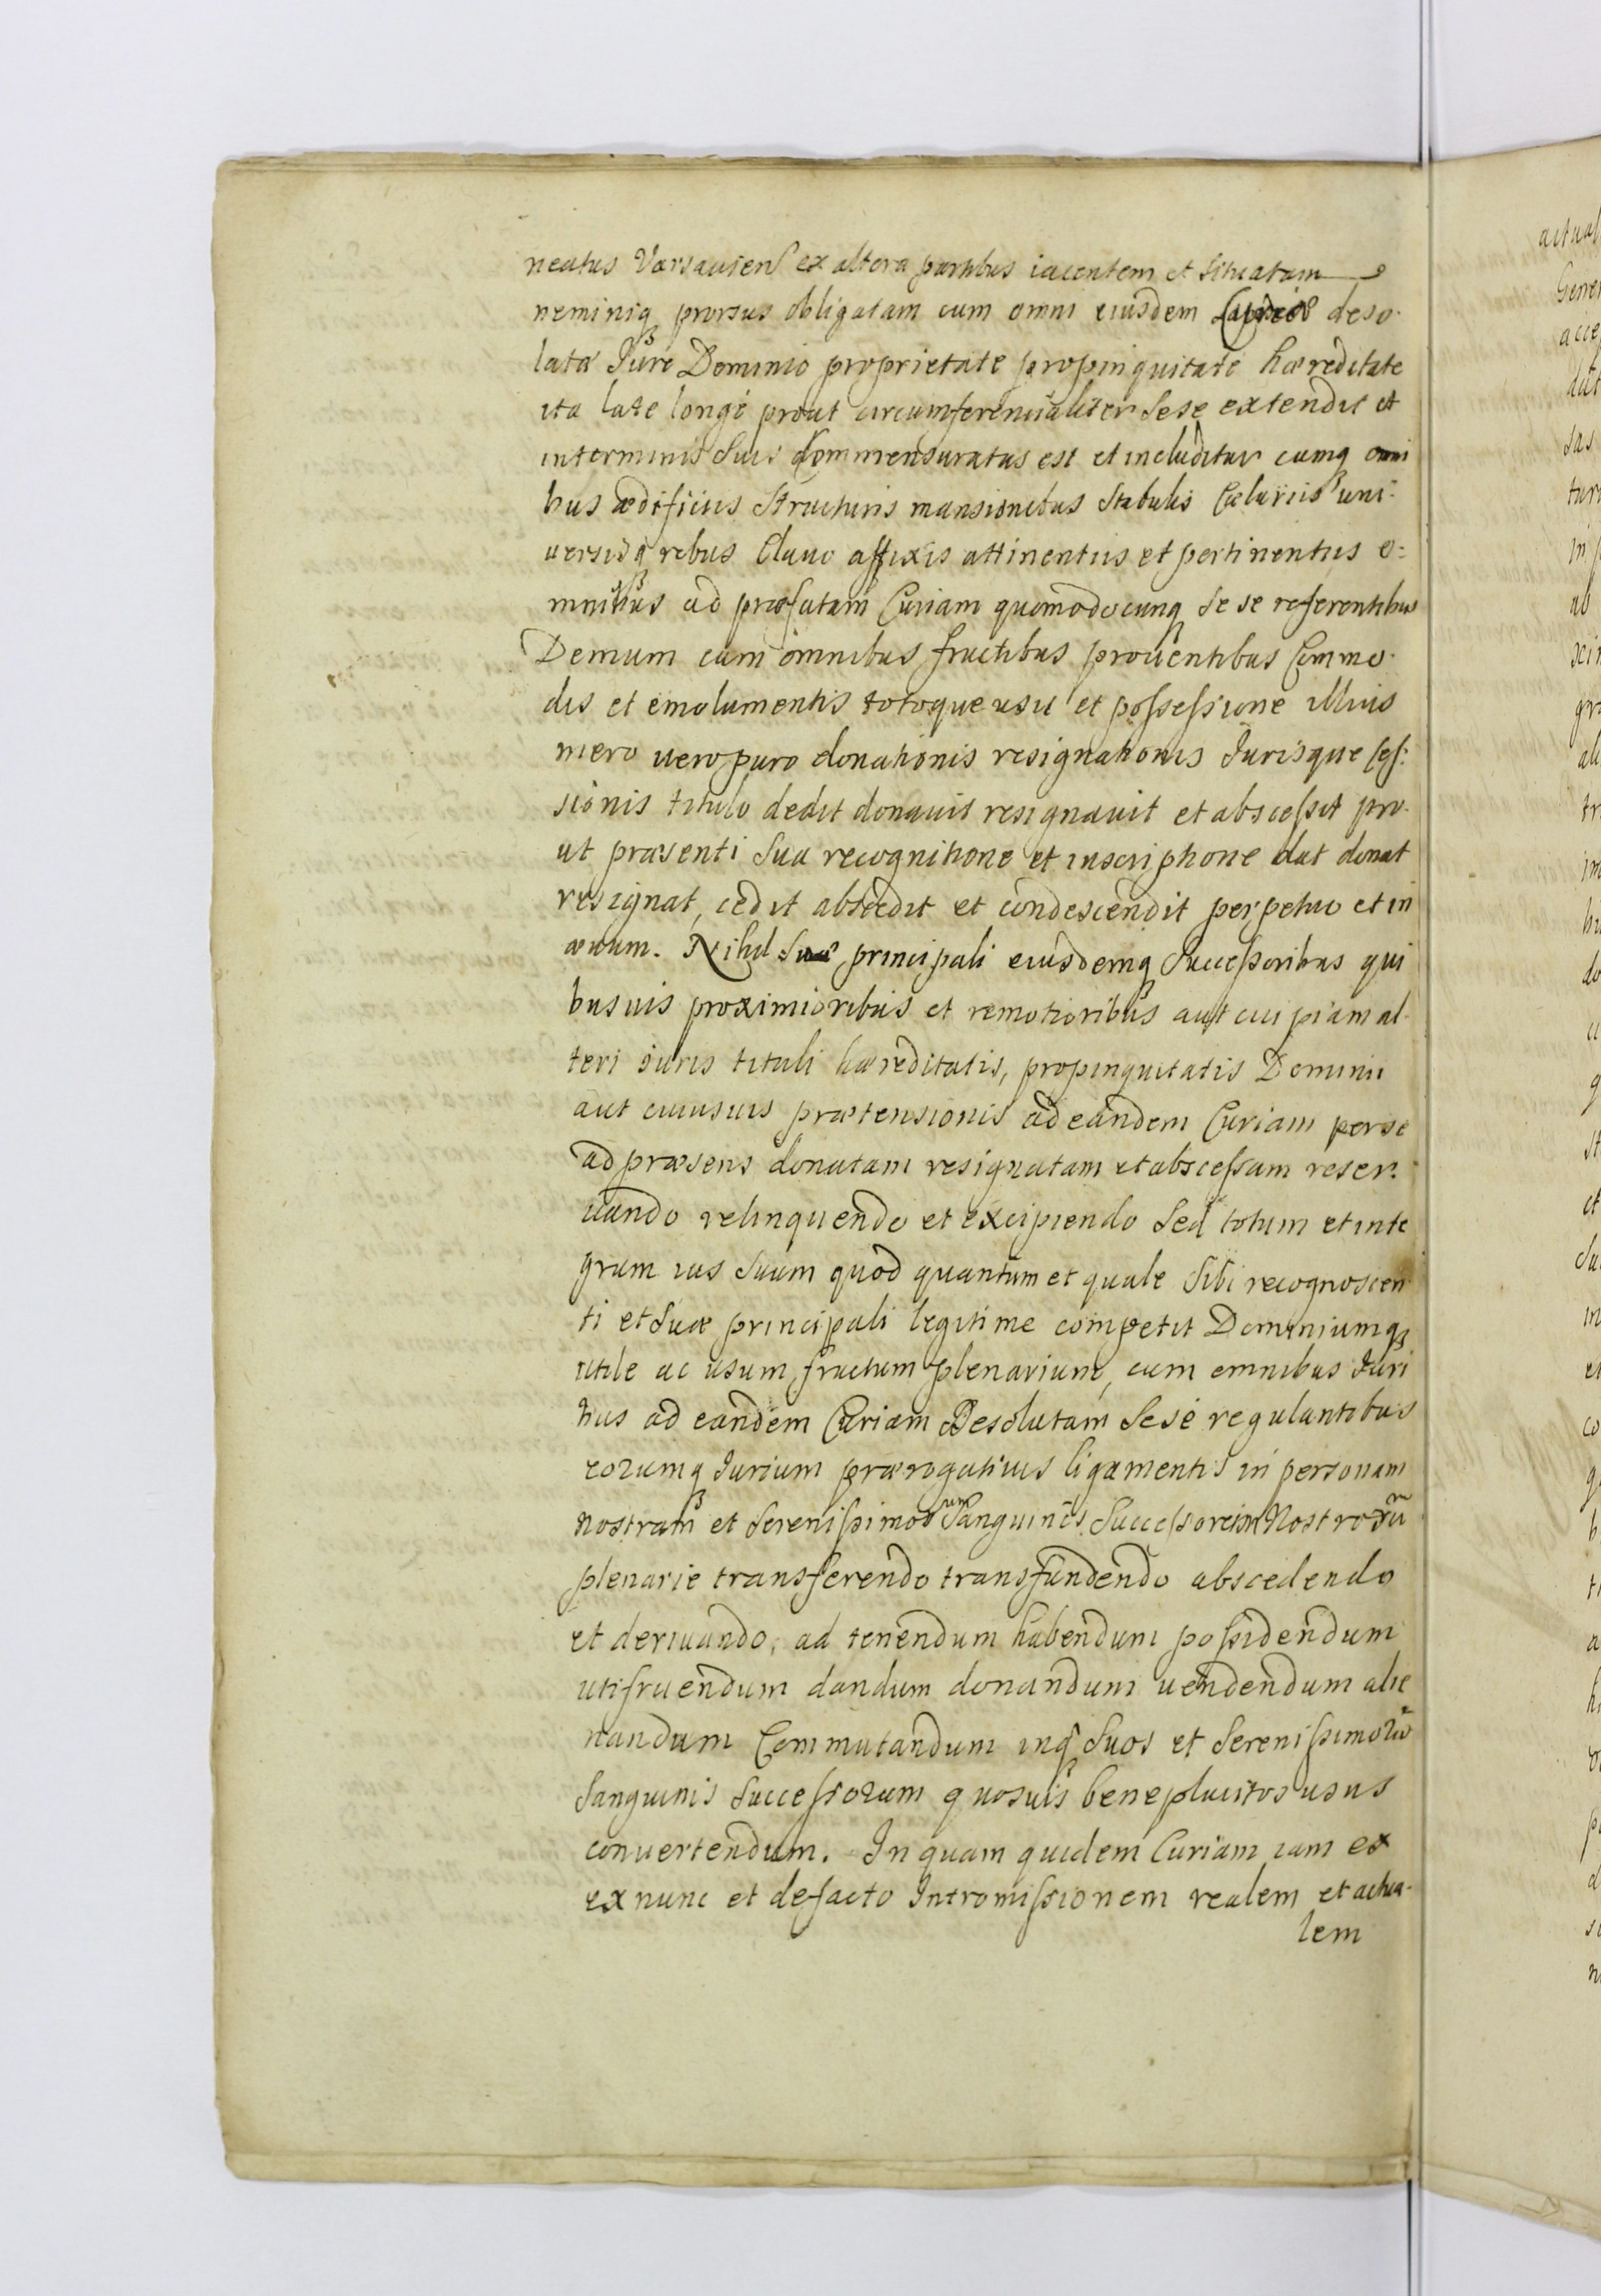 neatus Varsauien ex altera partibus iacentem et situatam
neminiq prorsus obligatam cum omni eiusdem Curiæ deso-
latæ Jure Dominio proprietate propinquitate hæreditate
ita late longe prout circumferencialiter sese extendit et
interminis suis commensuratus est et includitur cumq omni
bus ædificiis structuris mansionibus stabulis Celariis uni-
uersisq rebus Clauo affixis attinentiis et pertinentiis o=
mnibus ad præfatam Curiam quomodocunq se se referentibus
Demum cum omnibus fructibus prouentibus Commo-
dis et emolumentis totoque usu et possessione illius
mero vero puro donationis resignationis Jurisque Ces:
sionis titulo dedit donauit resignauit et abscessit pro-
ut præsenti sua recognitione et inscriptione dat donat
resignat, cedit abscedit et condescendit perpetuo et in
æuum. Nihil suæ principali eiusdemq Successoribus qui
busuis proximioribus et remotioribus aut cuipiam al-
teri iuris tituli hæreditatis, propinquitatis Dominii
aut cuiusuis prætensionis ad eandem Curiam per se
ad præsens donatam resignatam et abscessam reser-
uando relinquendo et excipiendo sed totum et inte
grum ius suum quod quantum et quale sibi recognoscen
ti et suæ principali legitime competit Dominiumq
utile ac usum fructum plenarium, cum omnibus Juri
bus ad eandem Curiam Desolutam sese regulantibus
eorumq Jurium prærogatiuis ligamentis in personam
nostram et Serenissimorum Sanguinis Successorum Nostrorum
plenarie transferendo transfundendo abscedendo
et deriuando, ad tenendum habendum possidendum
utifruendum dandum donandum uendendum alie
nandum Commutandum inq suos et Serenissimorū
Sanguinis Successorum quosuis beneplacitos usus
conuertendum. In quam quidem Curiam iam ex
ex nunc et de facto Intromissionem realem et actua-
lem